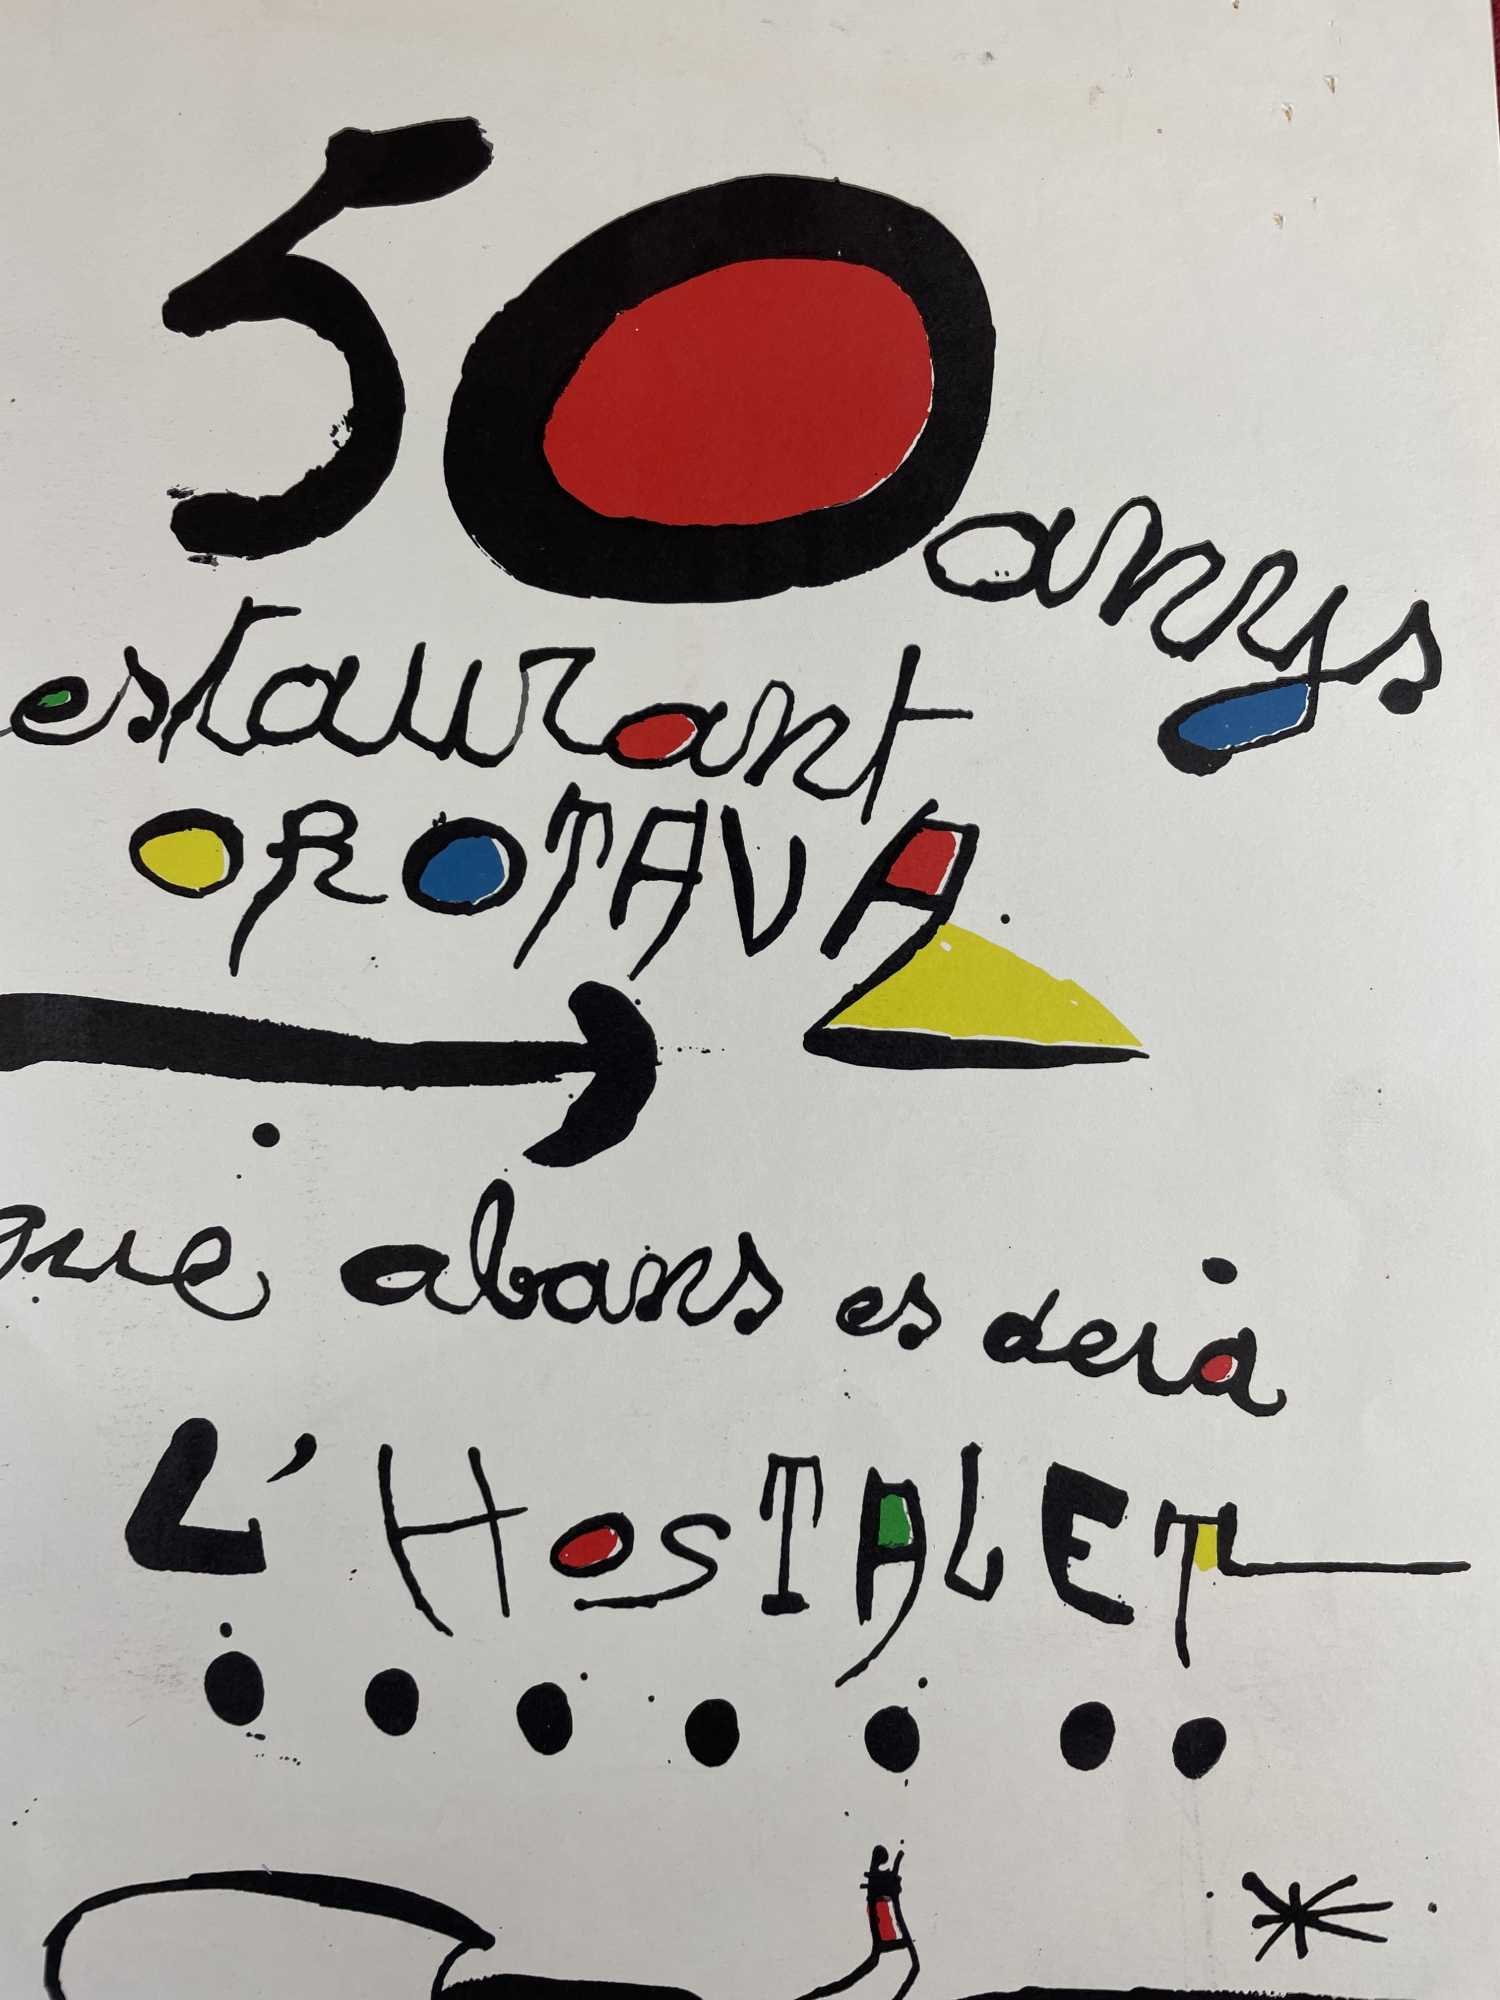 50 anys
estaurant
OROTAVA
que abans es deia
L'HOSTALET